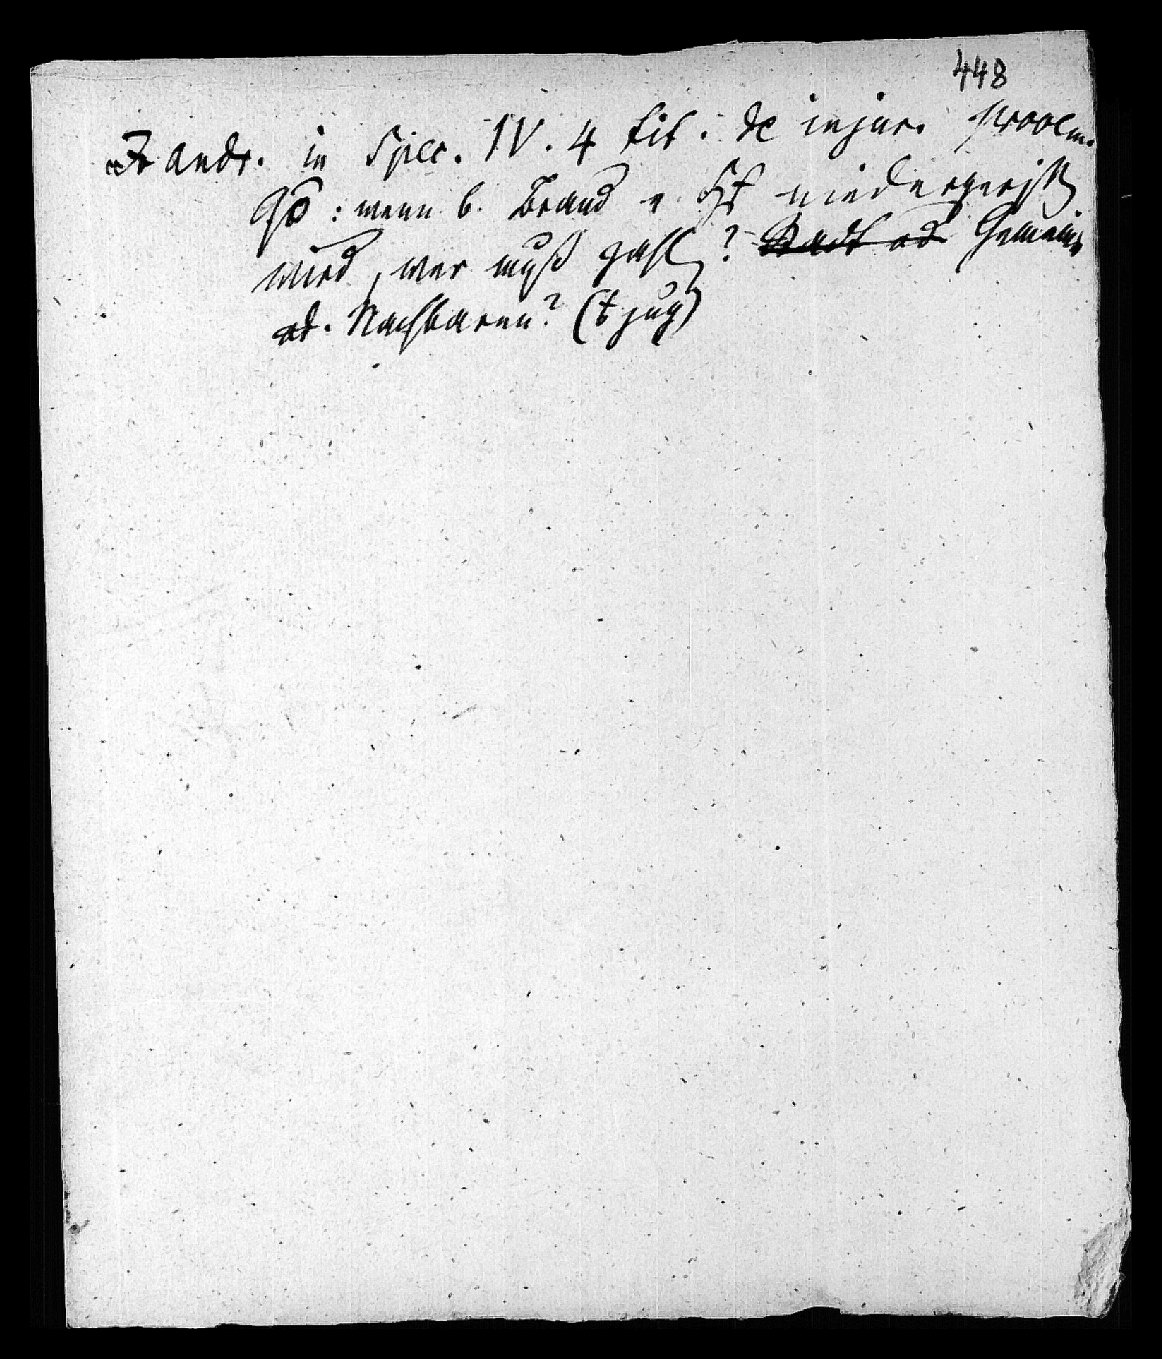 448
J andr. in Spec. IV. 4 tit. de injur. prooem.
Qo: wenn b. Brand e. Hs niedergeriss
wird, wer muß zahl? Stadt od Gemein
od. Nachbaren?